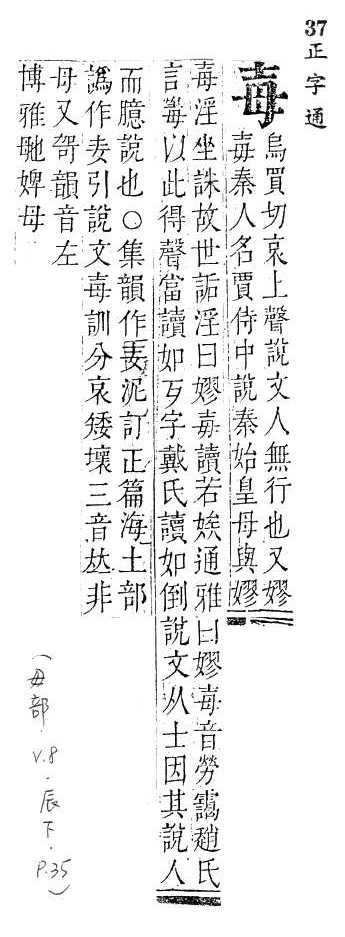 37正字通
毐
烏買切哀上聲說文人無行也又嫪
毐秦人名賈侍中說秦始皇母與嫪
毐淫坐誅故世詬淫曰嫪毐讀若娭通雅曰嫪毐音勞靄趙氏
言毐以此得聲當讀如歹字戴氏讀如倒說文从士因其說人
而臆說也○集韻作毐泥訂正篇海土部
譌作毐引說文毐訓分哀矮壞三音𠀤非
母又哿韻音左
博雅毑婢母
(毋部 V.8.辰下.P.35)